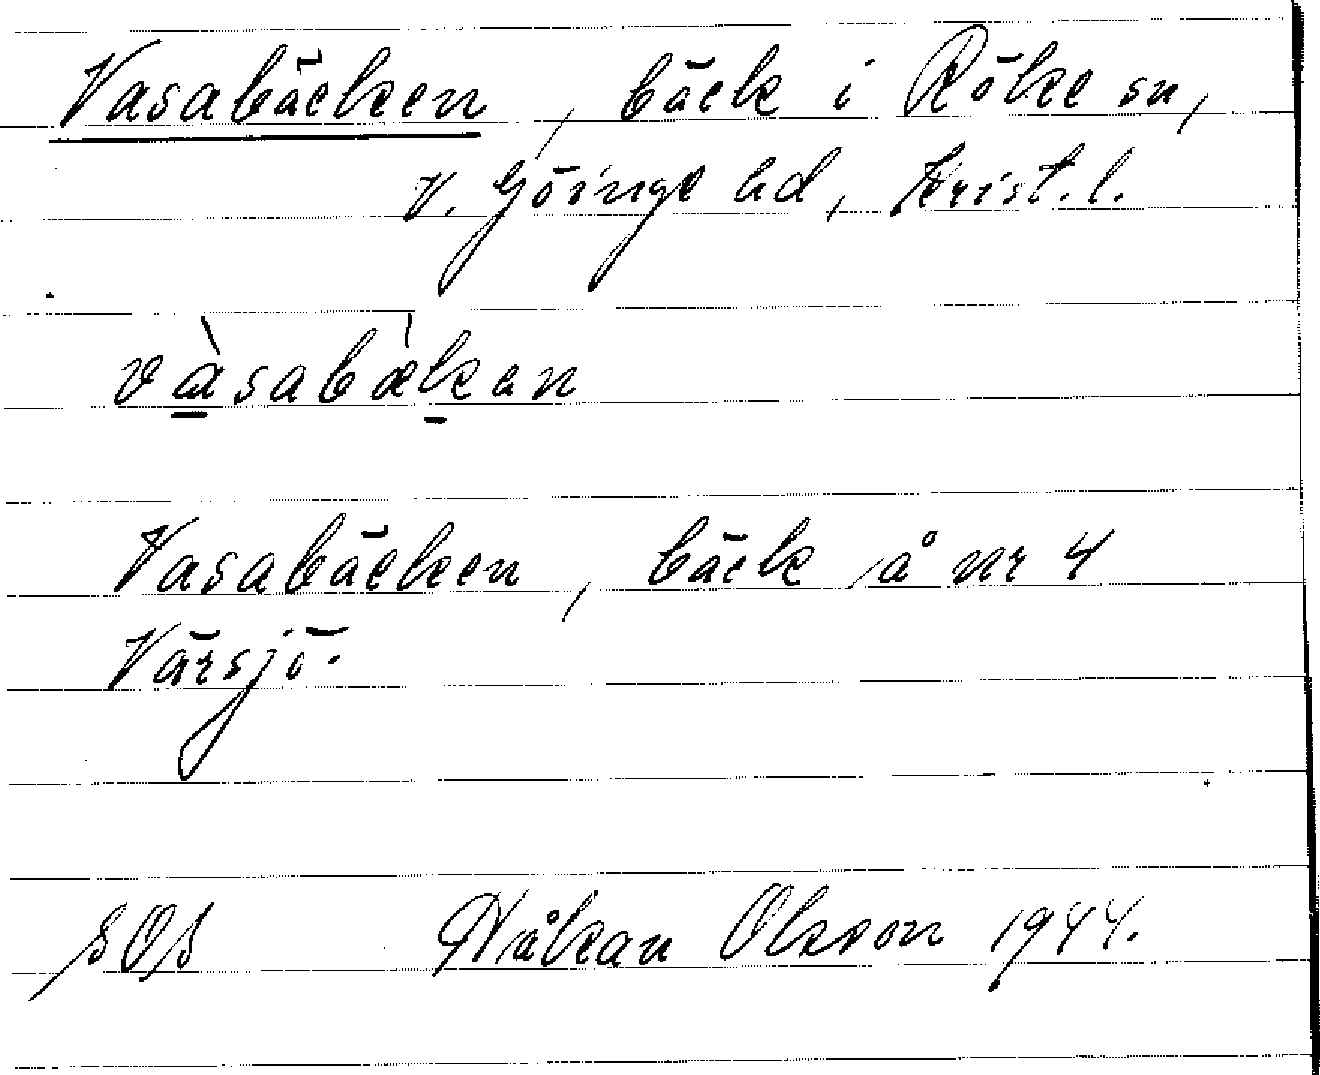 Vasabäcken, bäck i Röke sn,
V. Göinge hd, Krist. l.
vàsabæ̀kan
Vasabäcken, bäck å nr 4
Värsjö.
SOS Håkan Olsson 1944.